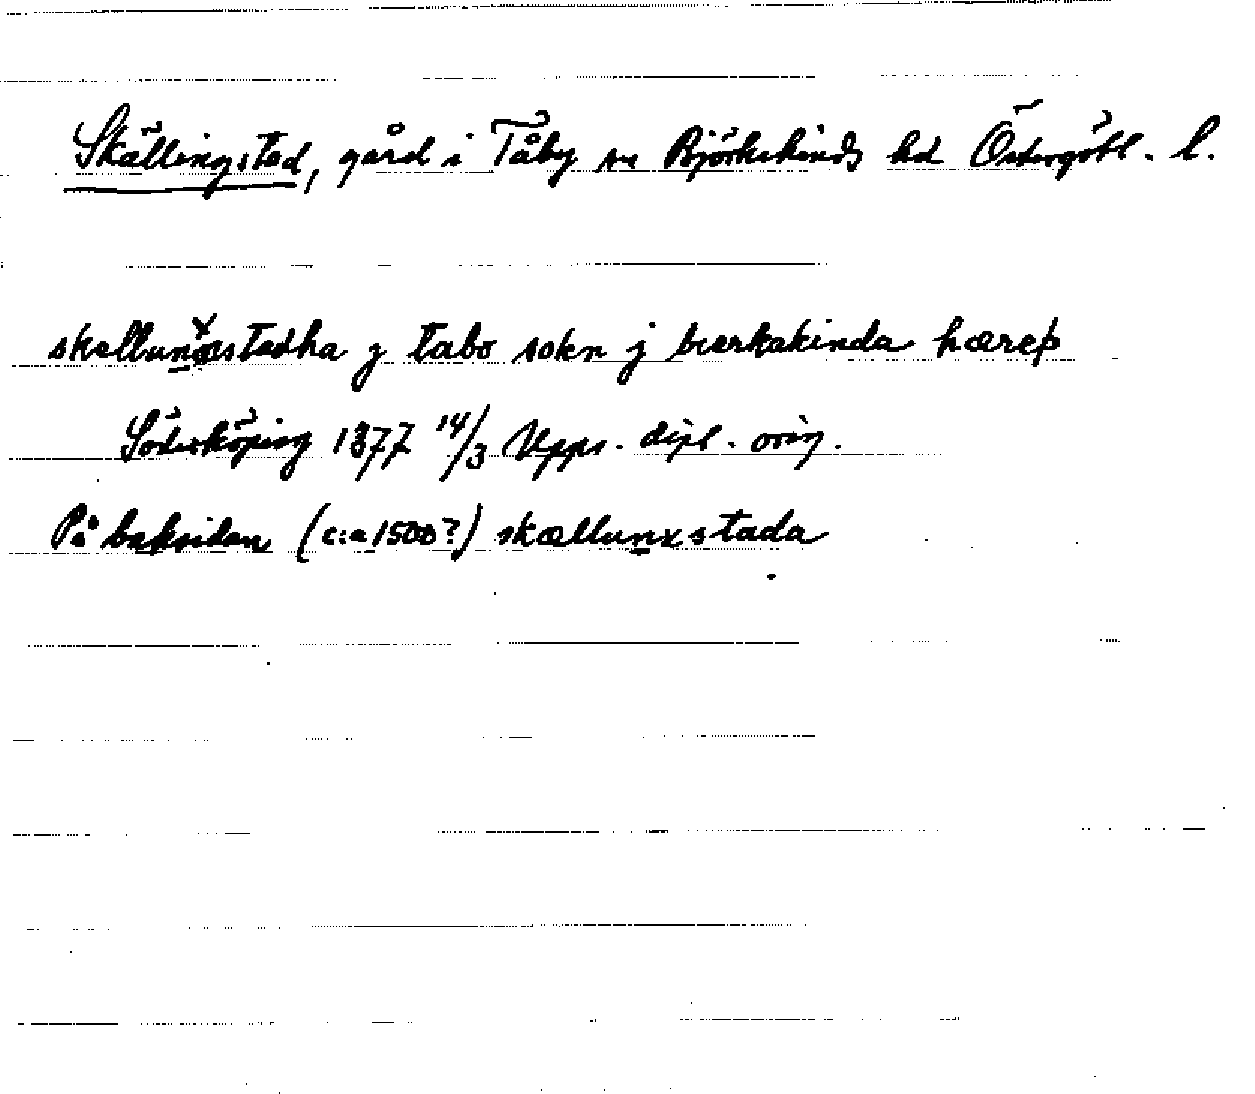 Skällingstad, gård i Tåby sn Björkekinds hd Östergötl. l.
skællunxstadha j tabo sokn j bierkakinda hæreþ
Söderköping 1377 14/3 Upps. dipl. orig.
På baksidan (c:a 1500?) skællunxstada